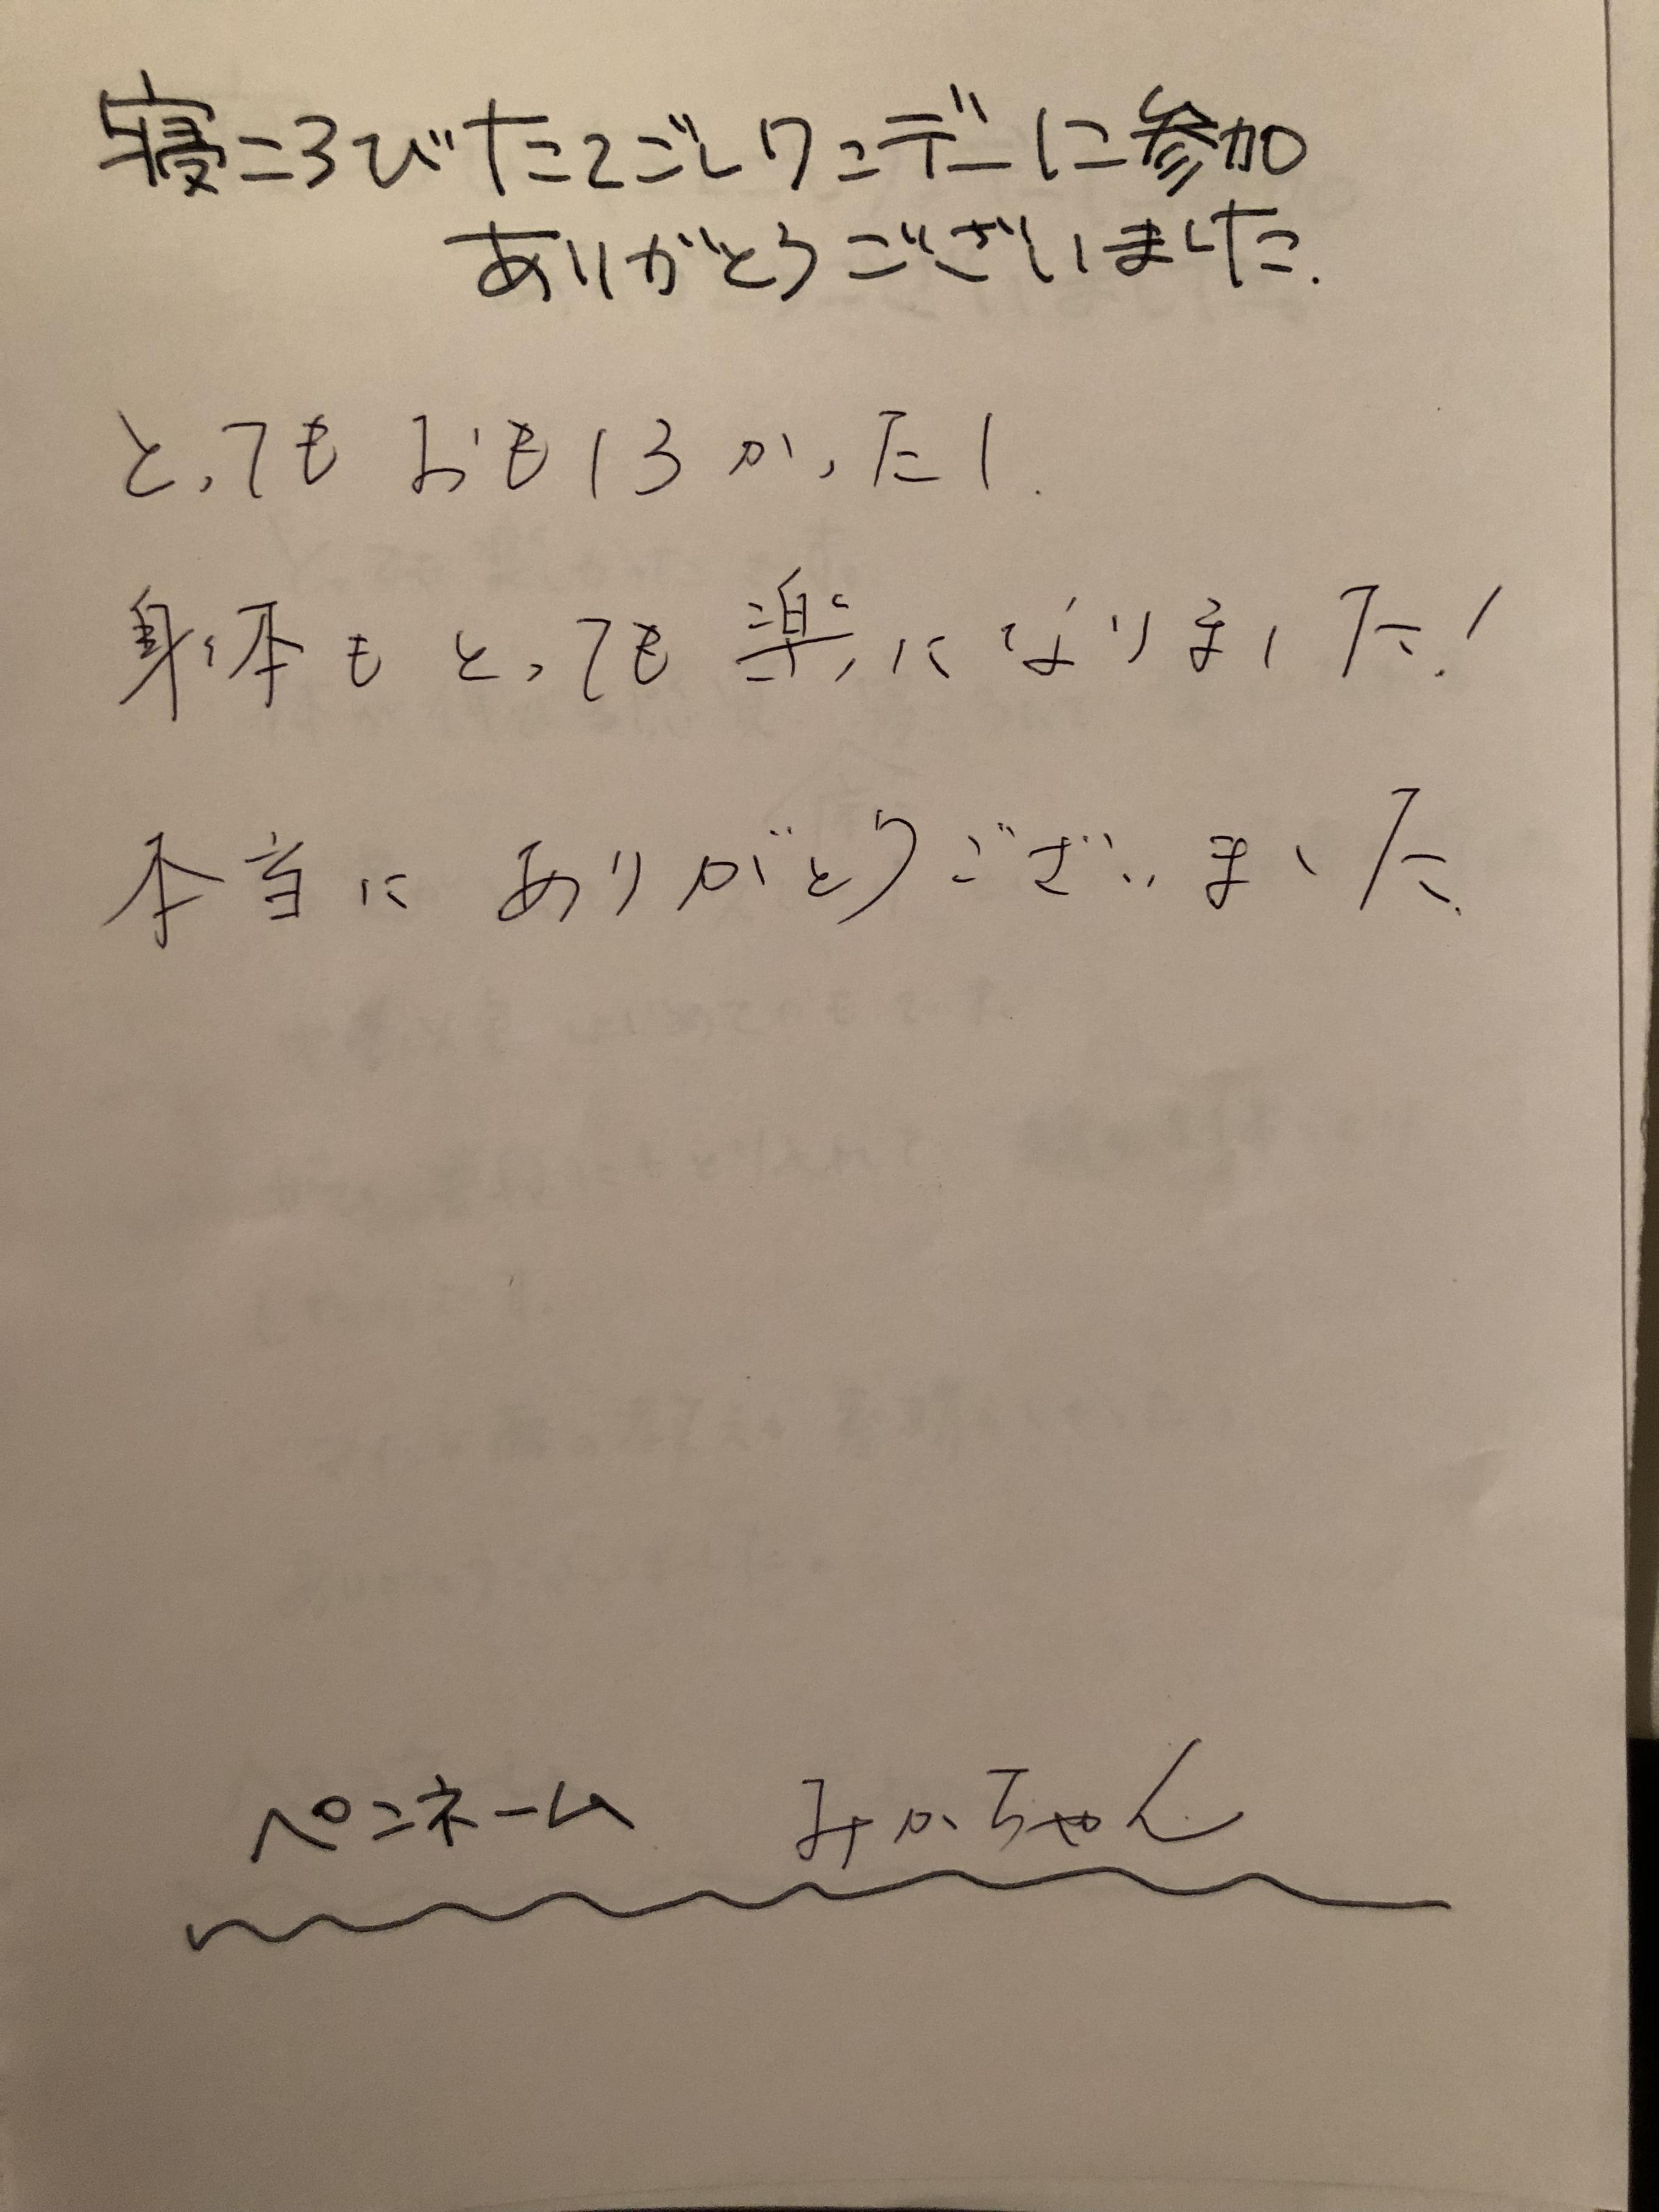 寝ころびたこごしワンデーに参加
ありがとうございました.
とってもおもしろかったし.
身体もとっても楽になりました!
本当にありがとうございました.
ペンネーム みかちゃん